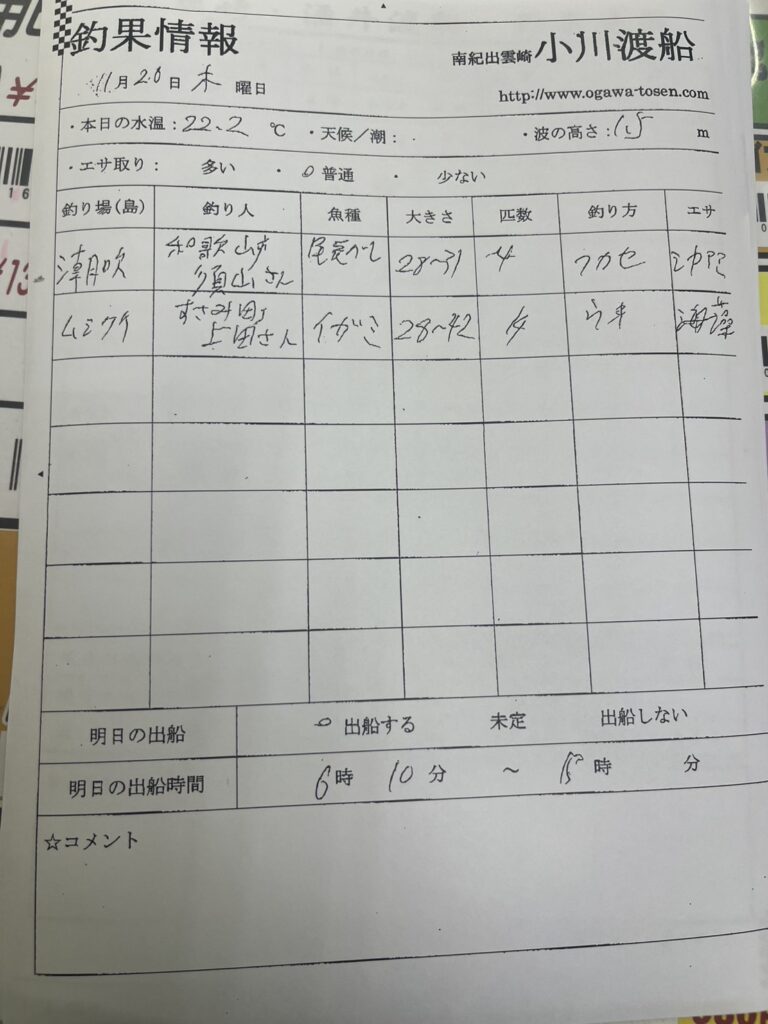 釣果情報
南紀出雲崎 小川渡船
11月20日 木 曜日
http://www.ogawa-tosen.com
・本日の水温：22.2 ℃ ・天候／潮： ・波の高さ：1.5 m
・エサ取り： 多い ・ 普通 ・ 少ない
釣り場(島) 釣り人 魚種 大きさ 匹数 釣り方 エサ
潮吹 和歌山市 須山さん 尾長グレ 28〜31 4 フカセ
すさみ町 上田さん イガミ 28〜42 ウキ 海藻
明日の出船 出船する 未定 出船しない
明日の出船時間 6時 10分 〜 時 分
☆コメント